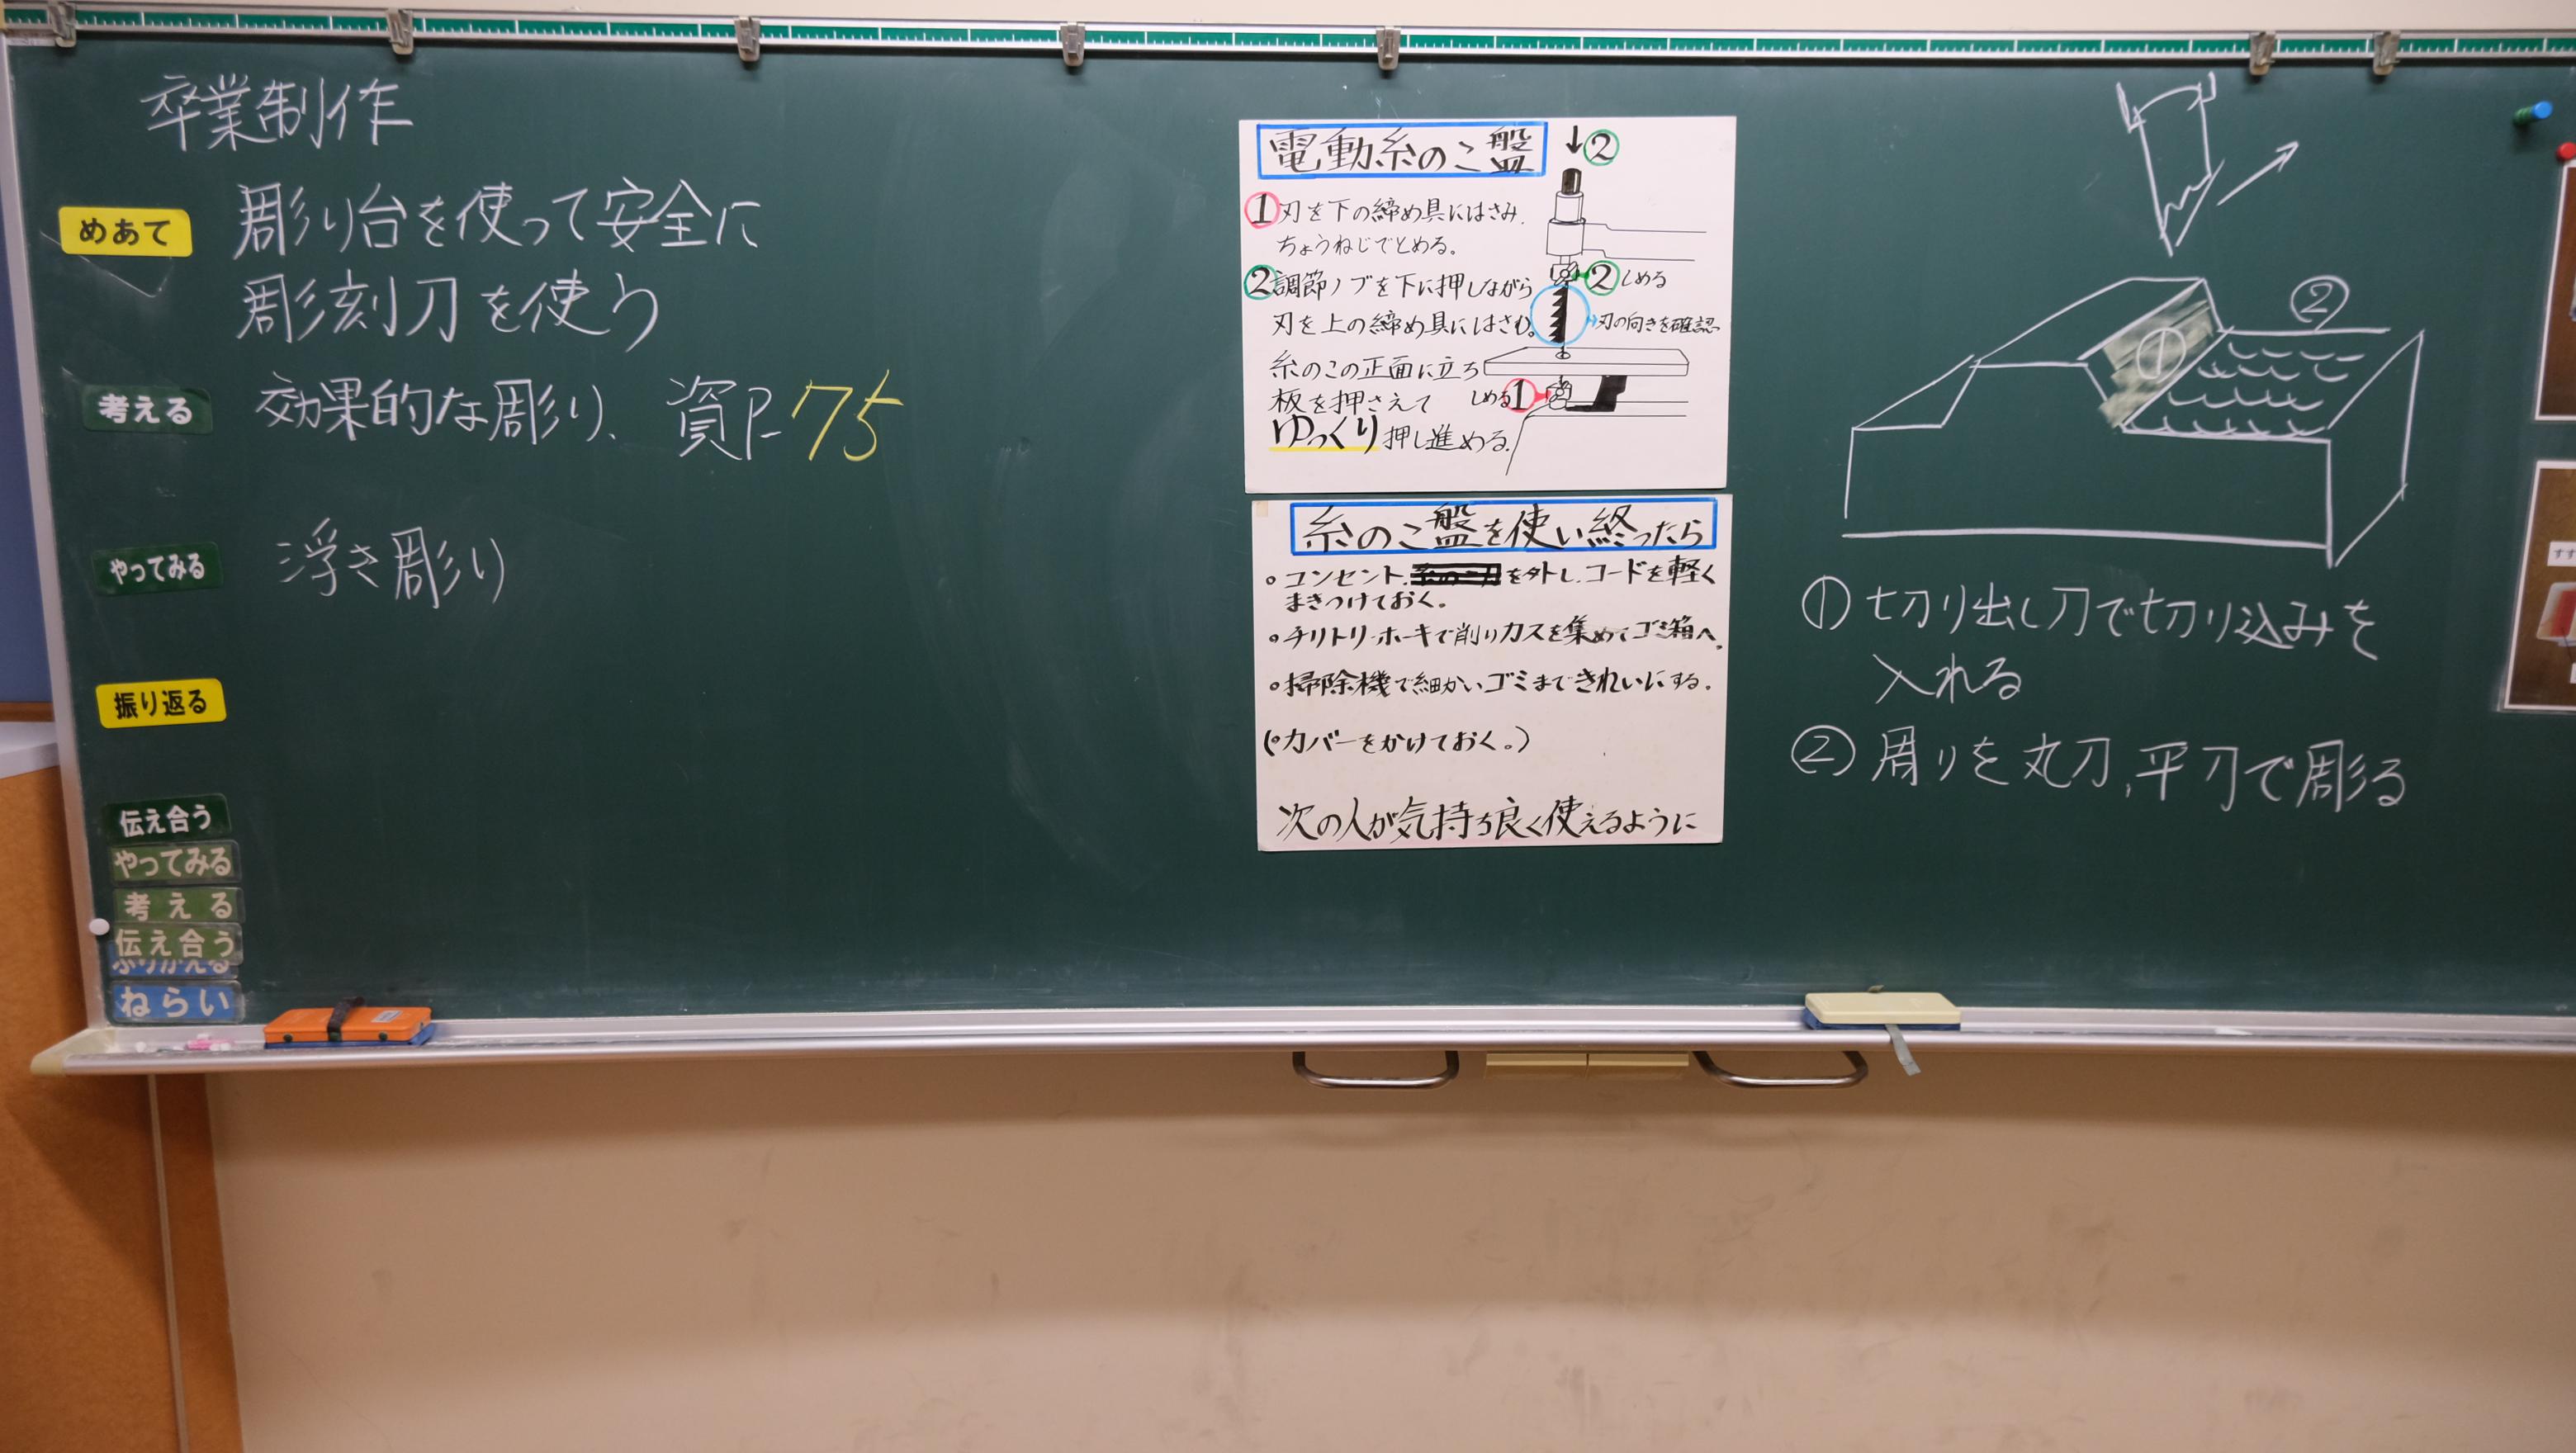 卒業制作
めあて
彫り台を使って安全に
彫刻刀を使う
考える
効果的な彫り、 資P-75
やってみる
浮き彫り
振り返る
伝え合う
やってみる
考える
伝え合う
ふりかえる
ねらい
電動糸のこ盤
②
①刃を下の締め具にはさみ、
ちょうねじでとめる。
②調節ノブを下に押しながら
刃を上の締め具にはさむ。
②しめる
刃の向きを確認
糸のこの正面に立ち
板を押さえて
ゆっくり押し進める。
しめる①
糸のこ盤を使い終ったら
○コンセント、を外し、コードを軽く
まきつけておく。
○チリトリ・ホーキで削りカスを集めてゴミ箱へ。
○掃除機で細かいゴミまできれいにする。
(○カバーをかけておく。)
次の人が気持ち良く使えるように
①
②
①切り出し刀で切り込みを
入れる
②周りを丸刀、平刀で彫る